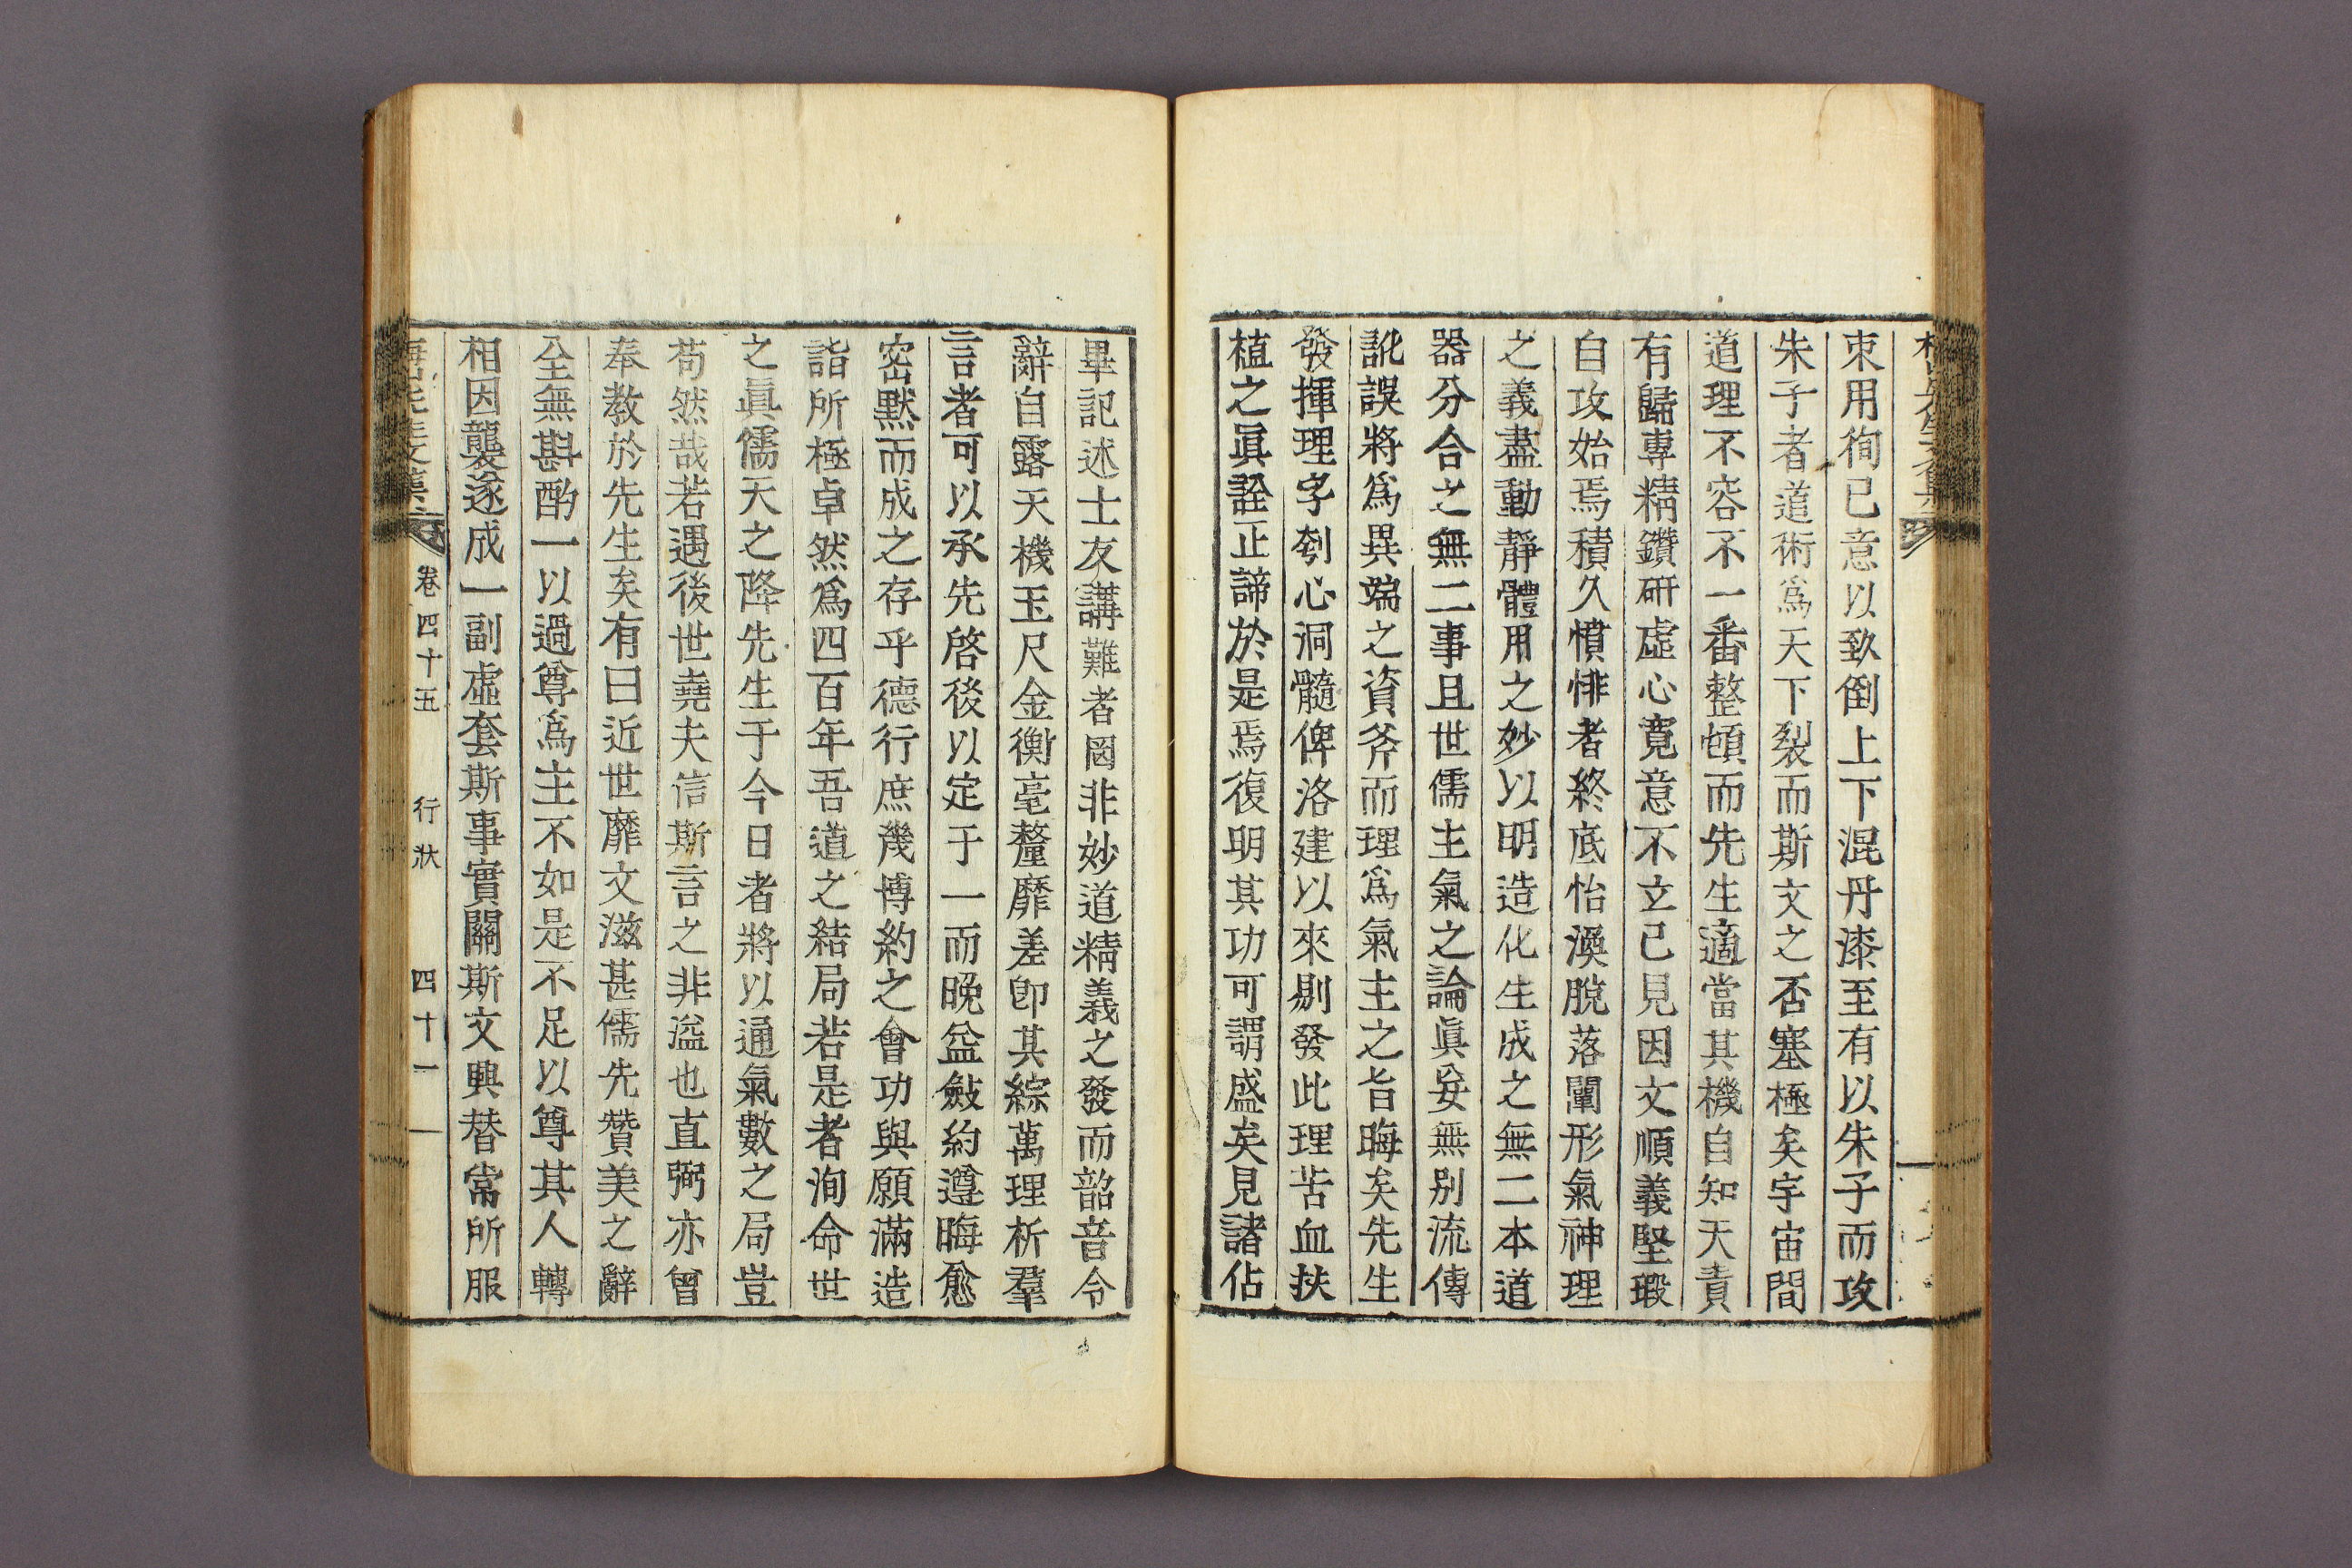 束用徇已意以致倒上下混丹漆至有以朱子而攻
朱子者道術爲天下裂而斯文之否塞極矣宇宙間
道理不容不一番整頓而先生適當其機自知天責
有歸專精鑽硏虛心寛意不立已見因文順義堅瑕
自攻始焉積久憤悱者終底怡渙脫落闡形氣神理
之義盡動靜體用之妙以明造化生成之無二本道
器分合之無二事且世儒主氣之論眞妄無別流傳
訛誤將爲異端之資斧而理爲氣主之旨晦矣先生
發揮理字刳心洞髓俾洛建以來剔發此理苦血扶
植之眞詮正諦於是焉復明其功可謂盛矣見諸佔
畢記述士友講難者罔非妙道精義之發而韶音令
辭自露天機玉尺金衡毫釐靡差卽其綜萬理析羣
言者可以承先啓後以定于一而晩益斂約遵晦愈
密默而成之存乎德行庶幾博約之會功與願滿造
詣所極卓然爲四百年吾道之結局若是者洵命世
之眞儒天之降先生于今日者將以通氣數之局豈
苟然哉若遇後世堯夫信斯言之非溢也直弼亦曾
奉敎於先生矣有曰近世靡文滋甚儒先贊美之辭
全無斟酌一以過尊爲主不如是不足以尊其人轉
相因襲遂成一副虛套斯事實關斯文興替常所服
卷四十五 行狀 四十一